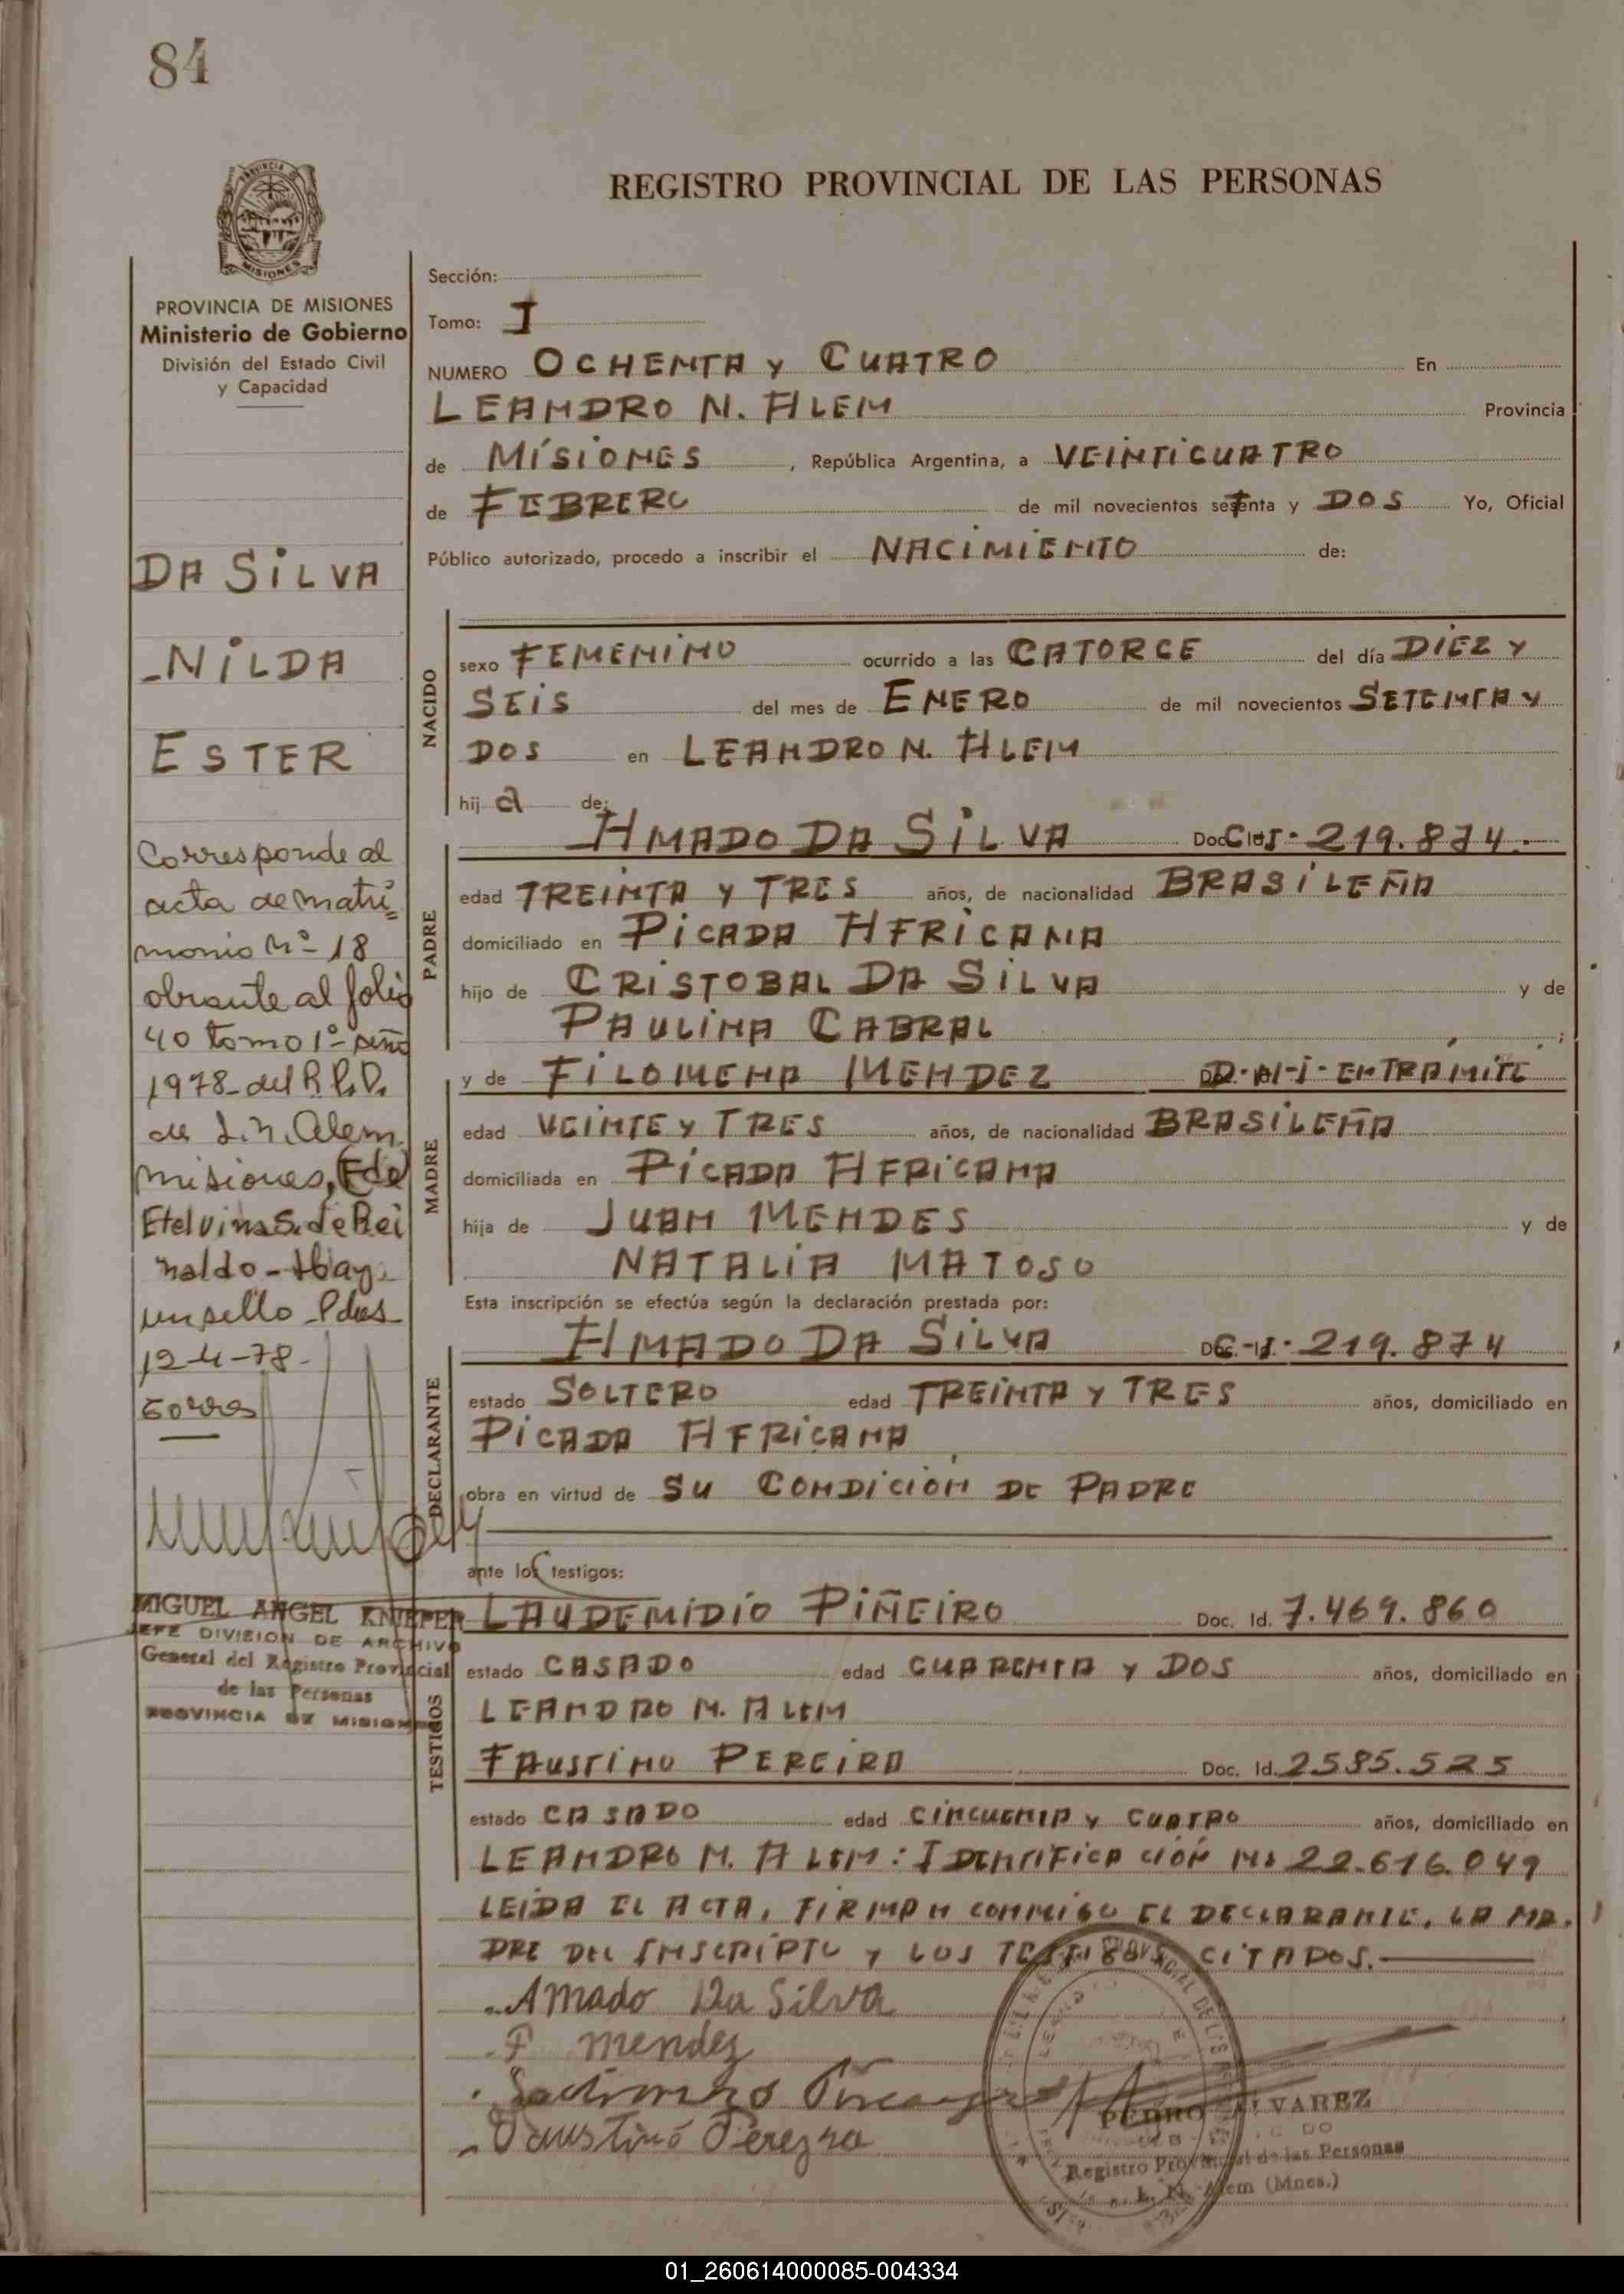 84
PROVINCIA DE MISIONES
Ministerio de Gobierno
División del Estado Civil
y Capacidad
DA SILVA
-NILDA
ESTER
Corresponde al
acta de matri=
monio Nº 18
obrante al folio
40 tomo 1º año
1978 del R.P.P.
de L.N. Alem
misiones, (Fdo)
Etelvina S. de Rei
naldo - Hay
un sello - Pdas
12-4-78-
MIGUEL ANGEL KNIEPER
JEFE DIVISION DE ARCHIVO
General del Registro Provincial
de las Personas
PROVINCIA DE MISIONES
REGISTRO PROVINCIAL DE LAS PERSONAS
Sección:
Tomo: I
NUMERO OCHENTA Y CUATRO En
LEANDRO N. ALEM Provincia
de MISIONES, República Argentina, a VEINTICUATRO
de FEBRERO de mil novecientos setenta y DOS Yo, Oficial
Público autorizado, procedo a inscribir el NACIMIENTO de:
NACIDO
sexo FEMENINO ocurrido a las CATORCE del día DIEZ Y
SEIS del mes de ENERO de mil novecientos SETENTA Y
DOS en LEANDRO N. ALEM
hij a de:
AMADO DA SILVA Doc. C. Id. 219.874.
PADRE
edad TREINTA Y TRES años, de nacionalidad BRASILEÑA
domiciliado en PICADA AFRICANA
hijo de CRISTOBAL DA SILVA y de
PAULINA CABRAL ;
y de FILOMENA MENDEZ D.N.I. EN TRAMITE
MADRE
edad VEINTE Y TRES años, de nacionalidad BRASILEÑA
domiciliada en PICADA AFRICANA
hija de JUAN MENDES y de
NATALIA MATOSO
Esta inscripción se efectúa según la declaración prestada por:
AMADO DA SILVA Doc. C. Id. 219.874
DECLARANTE
estado SOLTERO edad TREINTA Y TRES años, domiciliado en
PICADA AFRICANA
obra en virtud de SU CONDICIÓN DE PADRE
ante los testigos:
LAUDEMIDIO PIÑEIRO Doc. Id. 7.469.860
TESTIGOS
estado CASADO edad CUARENTA Y DOS años, domiciliado en
LEANDRO N. ALEM
FAUSTINO PEREIRA Doc. Id. 2585.525
estado CASADO edad CINCUENTA Y CUATRO años, domiciliado en
LEANDRO N. ALEM: IDENTIFICACIÓN No 22.616.049
LEIDA EL ACTA, FIRMAN CONMIGO EL DECLARANTE, LA MA.
DRE DEL INSCRIPTO Y LOS TESTIGOS CITADOS.
Amado Da Silva
F mendez
Faustino Pereyra
PEDRO ALVAREZ
Registro Provincial de las Personas
L. N. Alem (Mnes.)
01_260614000085-004334